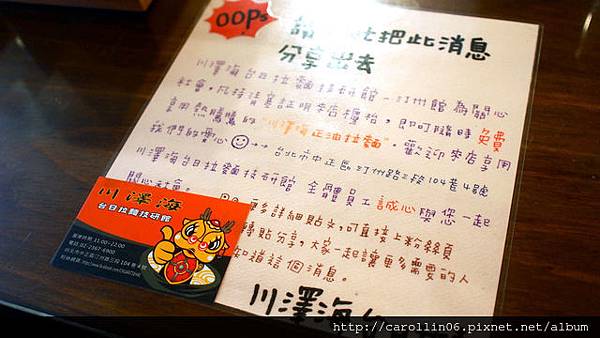 OOPs
把此消息
分享出去
川澤海台日拉麵技研館－汀州館 為關心
社會，凡持清寒証明來店櫃枱，即可隨時 免費
享用熱騰騰的 "川澤海正油拉麵"。歡迎來店享用
我們的愛心 → 台北市中正區汀州路三段104巷4號
川澤海台日拉麵技研館 全體員工 誠心 與您一起
關心社會。
更多詳細貼文，可直接上粉絲頁
轉貼分享，大家一起讓更多需要的人
知道這個消息。
川澤海台
川澤海
台日拉麵技研館
營業時間:11:00~22:00
電話:02-2367-6900
台北市中正區汀州路三段104巷4號
http://carollin06.pixnet.net/album